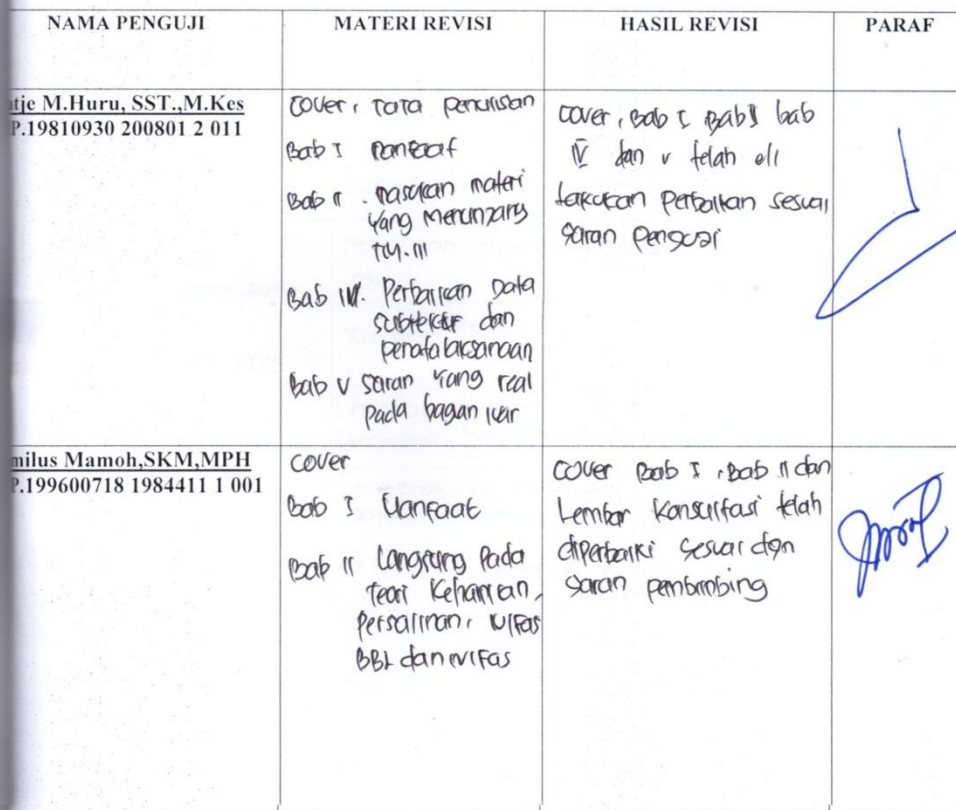 NAMA PENGUJI
MATERI REVISI
HASIL REVISI
PARAF
tje M.Huru, SST.,M.Kes
P.19810930 200801 2 011
Cover, Tata penulisan
Bab I manfaat
Bab II . masukan materi
yang menunjang
TM.III
Bab IV. Perbaikan Data
subjektif dan
penatalaksanaan
Bab V saran yang real
pada bagan
Cover, Bab I Bab II bab
IV dan V telah di
lakukan perbaikan sesuai
saran penguji
milus Mamoh,SKM,MPH
P.199600718 1984411 1 001
Cover
Bab I Manfaat
Bab II Langsung Pada
teori Kehamilan,
Persalinan, Nifas
BBL dan nifas
Cover Bab I, Bab II dan
Lembar Konsultasi telah
diperbaiki sesuai dgn
saran pembimbing